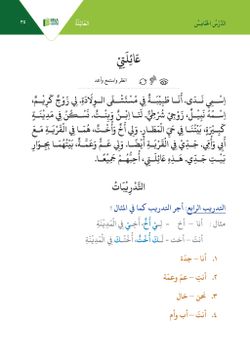 الدَّرْسُ الخَامِسُ
العَائِلَةُ
٣٤
عَائِلَتِيْ
انظر واستمع وأعد
اِسْمِي نَدَى، أَنَا طَبِيْبَةٌ فِي مُسْتَشْفَى الوِلَادَةِ، لِي زَوْجٌ كَرِيْمٌ،
اِسْمُهُ نَبِيْلٌ، زَوْجِيْ شُرْطِيٌّ، لَنَا اِبْنٌ وَبِنْتٌ، نَسْكُنُ فِي مَدِيْنَةٍ
كَبِيْرَةٍ، بَيْتُنَا فِي حَيِّ المَطَارِ. وَلِي أَخٌ وَأُخْتٌ، هُمَا فِي القَرْيَةِ مَعَ
أَبِي وَأُمِّي، جَدِّيْ فِي القَرْيَةِ أَيْضًا. وَلِي عَمٌّ وَعَمَّةٌ، بَيْتُهُمَا بِجِوَارِ
بَيْتِ جَدِّيْ. هَذِهِ عَائِلَتِي، أُحِبُّهُمْ جَمِيْعًا.
التَّدْرِيْبَاتُ
التدريب الرابع: أجر التدريب كما في المثال؟
مثال: أنا - أخ - لِيْ أَخٌ، أَخِيْ فِي المَدِيْنَةِ
أنت - أخت - لَكَ أُخْتٌ، أُخْتُكَ فِي المَدِيْنَةِ
١. أنا – جدة
٢. أنتِ – عم وعمة
٣. نحن – خال
٤. أنتَ – أب وأم